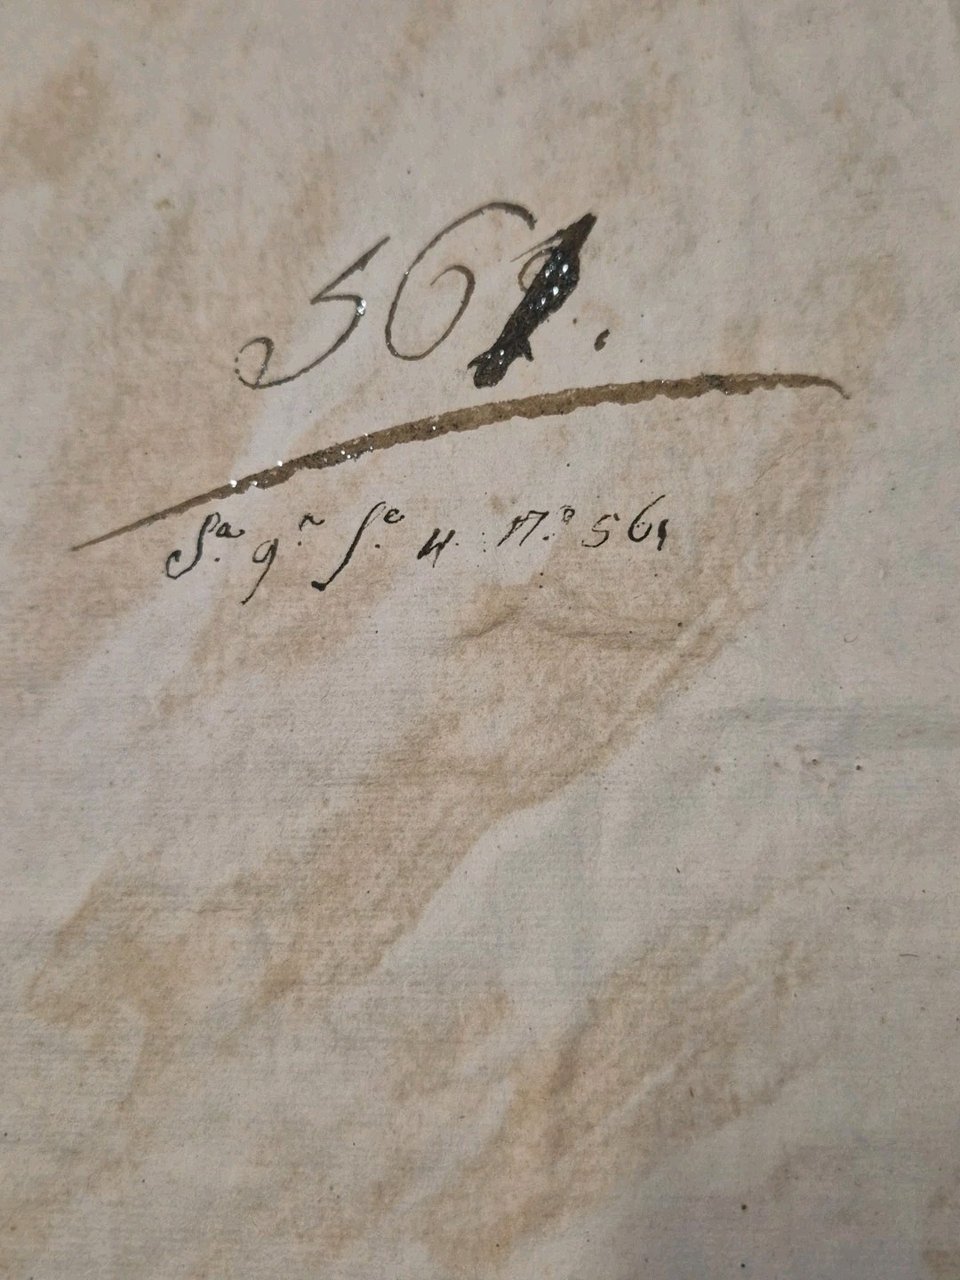 561.
S.ª 9.ª S.º 4 N.º 561